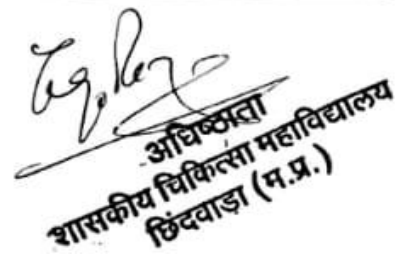 अधिष्ठाता
शासकीय चिकित्सा महाविद्यालय
छिंदवाड़ा (म.प्र.)